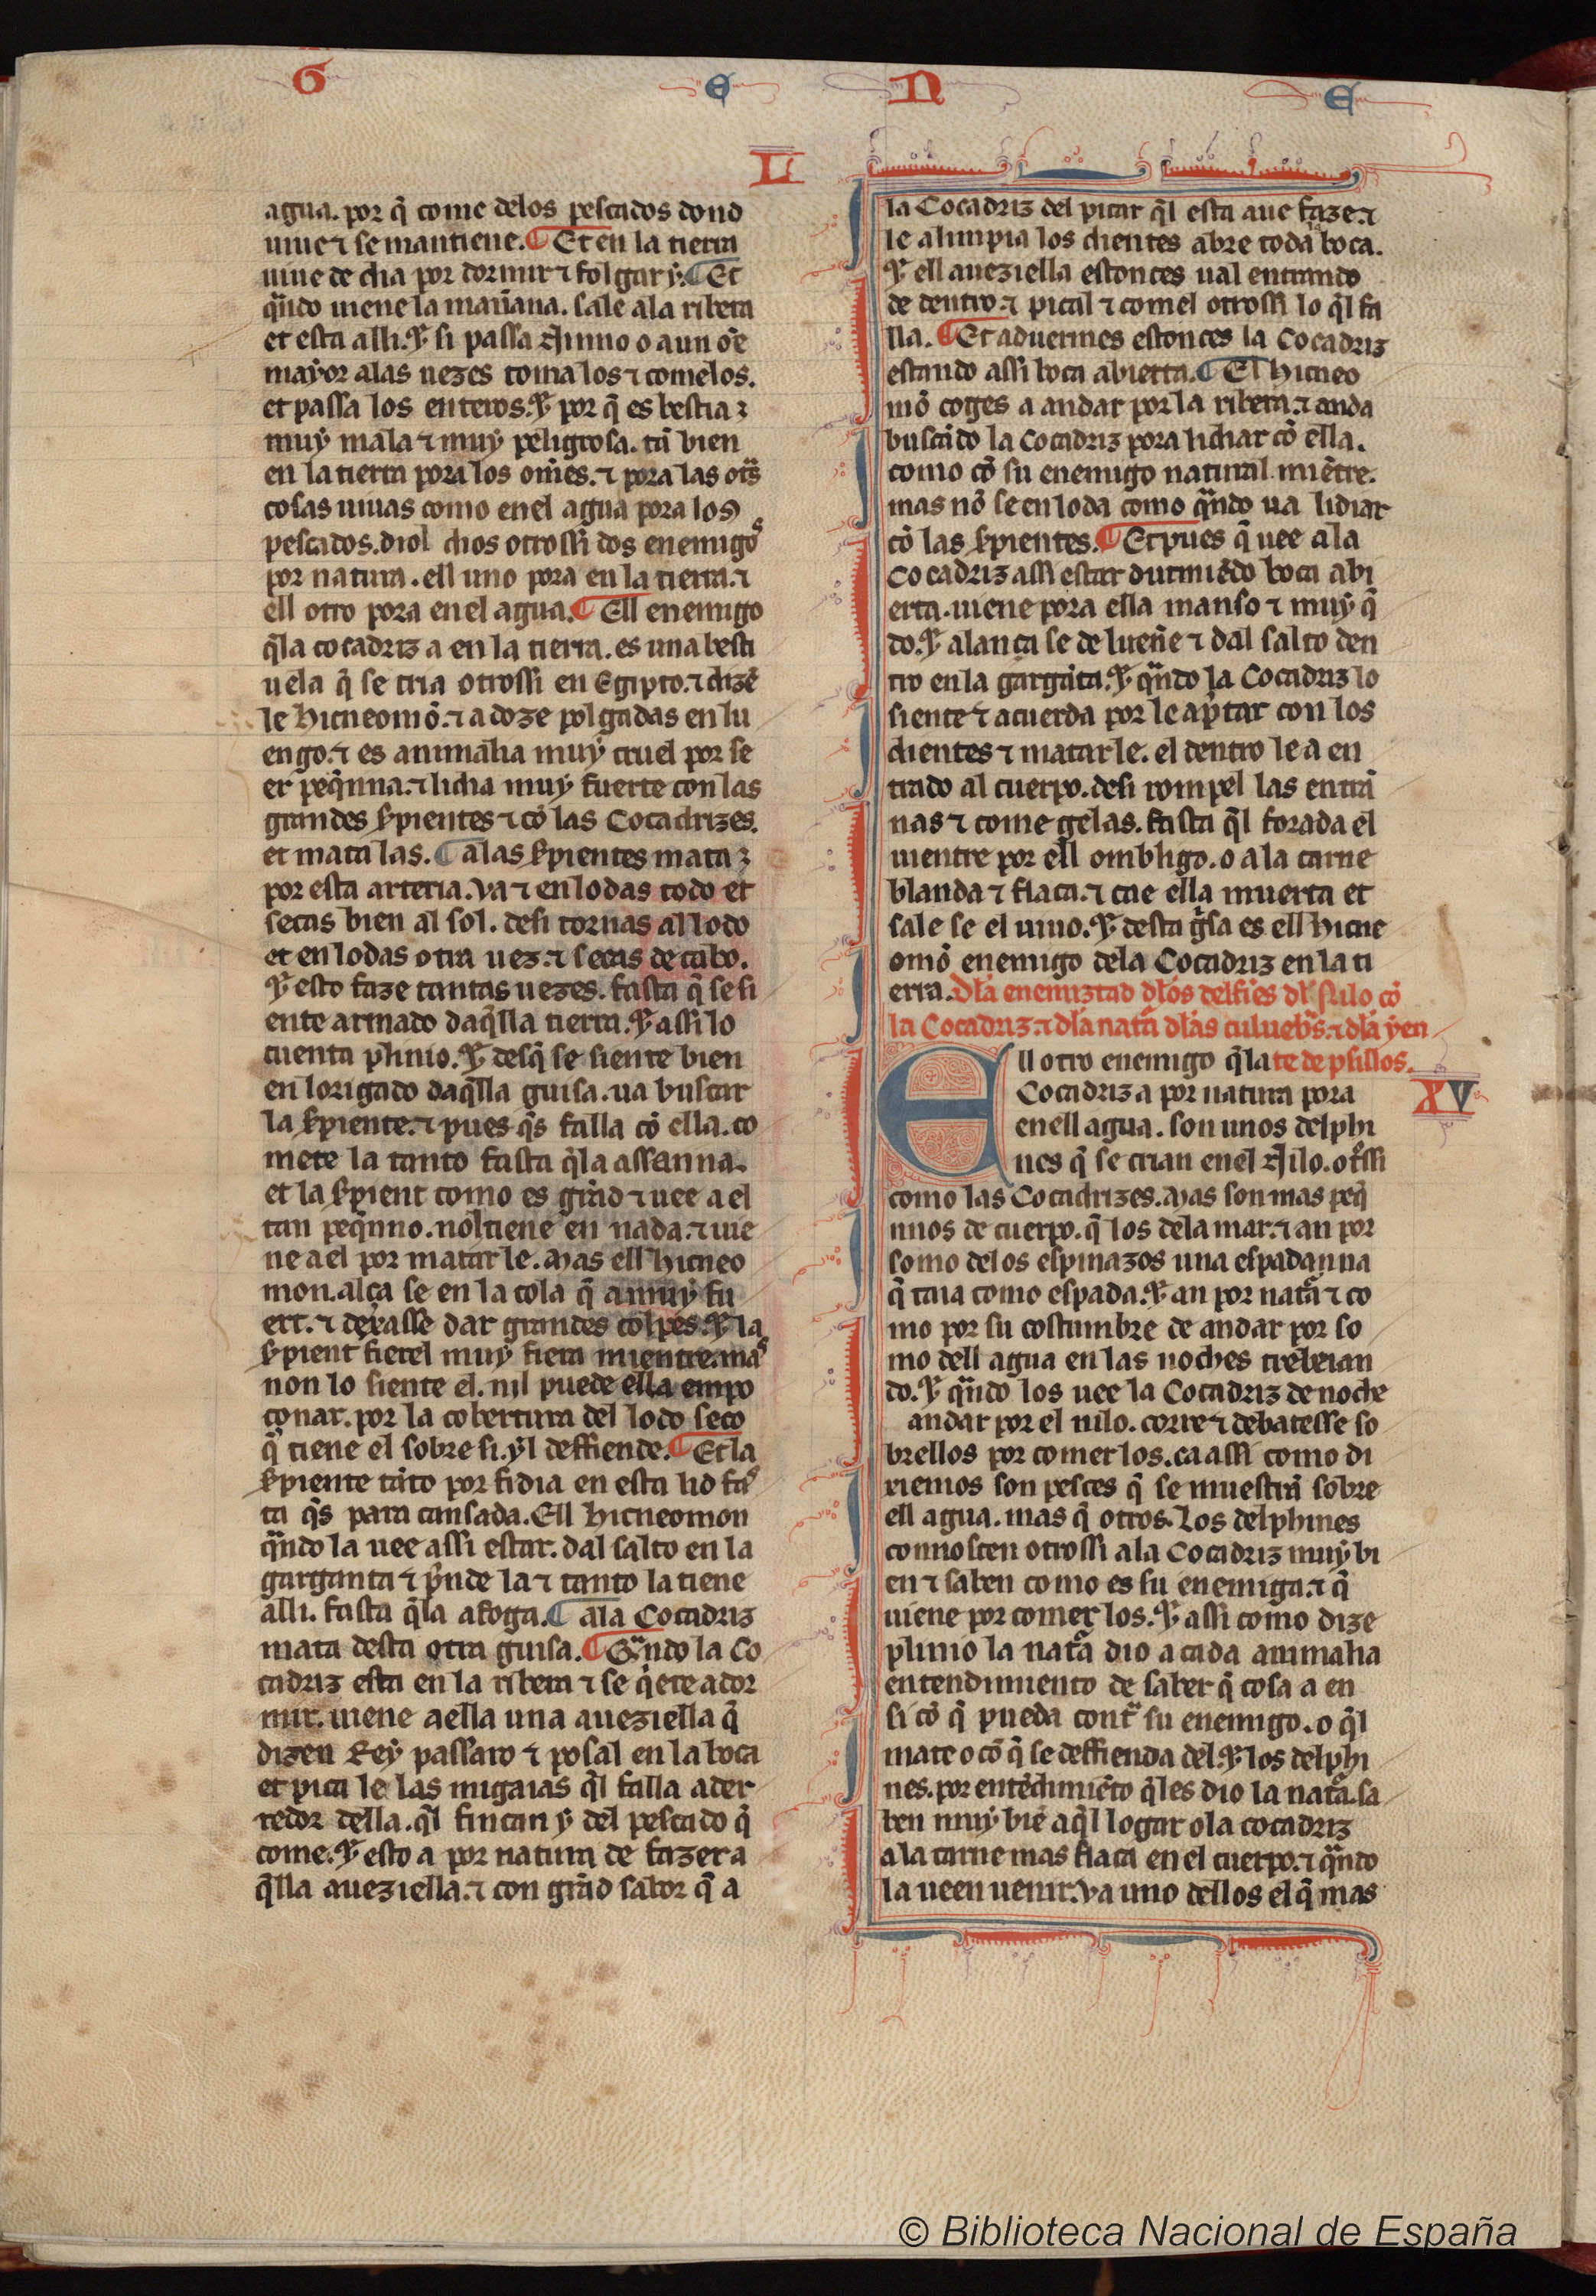 G E N E
L
agua. por q̃ come delos pescados dond
uiue ⁊ se mantiene. ¶ Et en la tierra
uiue de dia por dormir ⁊ folgar y. ¶ Et
qũdo uiene la mañana. sale ala ribera
et esta alli. Y si passa ninno o aun õe
mayor alas uezes toma los ⁊ comelos.
et passa los enteros. Y por q̃ es bestia
muy mala ⁊ muy peligrosa. tã bien
en la tierra pora los om̃es. ⁊ pora las otras
cosas uiuas como enel agua pora los
pescados. diol dios otrossi dos enemigos
por natura. ell uno pora en la tierra. ⁊
ell otro pora enel agua. ¶ Ell enemigo
q̃la cocadriz a en la tierra. es una besti
uela q̃ se cria otrossi en Egipto. ⁊ dizẽ
le hicneomõ. ⁊ a doze polgadas en lu
engo. ⁊ es animalia muy cruel por se
er peq̃nna. ⁊ lidia muy fuerte con las
grandes s̃pientes ⁊ cõ las Cocadrizes.
et mata las. ¶ alas s̃pientes mata
por esta arteria. va ⁊ enlodas todo et
secas bien al sol. desi tornas al lodo
et enlodas otra uez. ⁊ secas de cabo.
Y esto faze tantas uezes. fasta q̃ se si
ente armado daq̃lla tierra. Y assi lo
cuenta plinio. Y desq̃ se siente bien
en lorigado daq̃lla guisa. ua buscar
la s̃piente. ⁊ pues q̃s falla cõ ella. co
mete la tanto fasta q̃la assanna.
et la s̃pient como es grãd ⁊ uee a el
tan peq̃nno. nol tiene en nada. ⁊ uie
ne a el por matar le. Mas ell hicneo
mon. alça se en la cola q̃ a muy fu
ert. ⁊ dexasse dar grandes colpes. Y la
s̃pient fierel muy fiera mientre. mas
non lo siente el. nil puede ella empo
çonar. por la cobertura del lodo seco
q̃ tiene el sobre si. yl deffiende. ¶ Et la
s̃piente tãto porfidia en esta lid fas
ta q̃s para cansada. Ell hicneomon
qũndo la uee assi estar. dal salto en la
garganta ⁊ p̃nde la ⁊ tanto la tiene
alli. fasta q̃la afoga. ¶ ala Cocadriz
mata desta otra guisa. ¶ Qũndo la Co
cadriz esta en la ribera ⁊ se q̃ere ador
mir. uiene a ella una aueziella q̃
dizen Rey passaro ⁊ posal en la boca
et pica le las migaias q̃l falla a der
redor della. q̃l fincan y del pescado q̃
come. Y esto a por natura de fazer a
q̃lla aueziella. ⁊ con grãd sabor q̃ a
la Cocadriz del picar q̃l esta aue faze. ⁊
le alimpia los dientes abre toda la boca.
Y ell aueziella estonces ual entrando
de dentro. ⁊ pical ⁊ comel otrossi lo q̃l fa
lla. ¶ Et aduermes estonces la Cocadriz
estando assi boca abierta. ¶ El hicneo
mõ coges a andar por la ribera. ⁊ anda
buscãdo la Cocadriz pora lidiar cõ ella.
como cõ su enemigo natural miẽtre.
mas nõ se enloda como qũndo ua lidiar
cõ las s̃pientes. ¶ Et pues q̃ uee ala
Cocadriz assi estar durmiẽdo boca abi
erta. uiene pora ella manso ⁊ muy q̃
do. Y alança se de lueñe ⁊ dal salto den
tro en la gargãta. Y qũndo la Cocadriz lo
siente ⁊ acuerda por le ap̃tar con los
dientes ⁊ matarle. el dentro le a en
trado al cuerpo. desi rompel las entrã
nas ⁊ come gelas. fasta q̃l forada el
uientre por ell ombligo. o a la carne
blanda ⁊ flaca. ⁊ cae ella muerta et
sale se el uiuo. Y desta g̃sa es ell hicne
omõ enemigo dela Cocadriz en la ti
erra. Dla enemiztad dlos delfĩes dl Nilo cõ
la Cocadriz. ⁊ dla natã dlas culuebs. ⁊ dla yen
te de psillos.
XV
Ell otro enemigo q̃la
Cocadriz a por natura pora
enell agua. son unos delphi
nes q̃ se crian enel Nilo. otrssi
como las Cocadrizes. Mas son mas peq̃
nnos de cuerpo. q̃ los dela mar. ⁊ an por
somo delos espinazos una espadanna
q̃ taia como espada. Y an por natã ⁊ co
mo por su costumbre de andar por so
mo dell agua en las noches trebeian
do. Y qũndo los uee la Cocadriz de noche
andar por el nilo. corre ⁊ debatesse so
brellos por comer los. ca assi como di
xiemos son pesces q̃ se muestrã sobre
ell agua. mas q̃ otros. Los delphines
connoscen otrossi ala Cocadriz muy bi
en ⁊ saben como es su enemiga. ⁊ q̃
uiene por comer los. Y assi como dize
plinio la natã dio a cada animalia
entendimiento de saber q̃ cosa a en
si cõ q̃ pueda contr̃ su enemigo. o q̃l
mate o cõ q̃ se deffienda del. Y los delphi
nes. por entẽdimiẽto q̃les dio la natã. sa
ben muy biẽ aq̃l logar o la cocadriz
a la carne mas flaca en el cuerpo. ⁊ qũndo
la ueen uenir. va uno dellos el q̃ mas
© Biblioteca Nacional de España